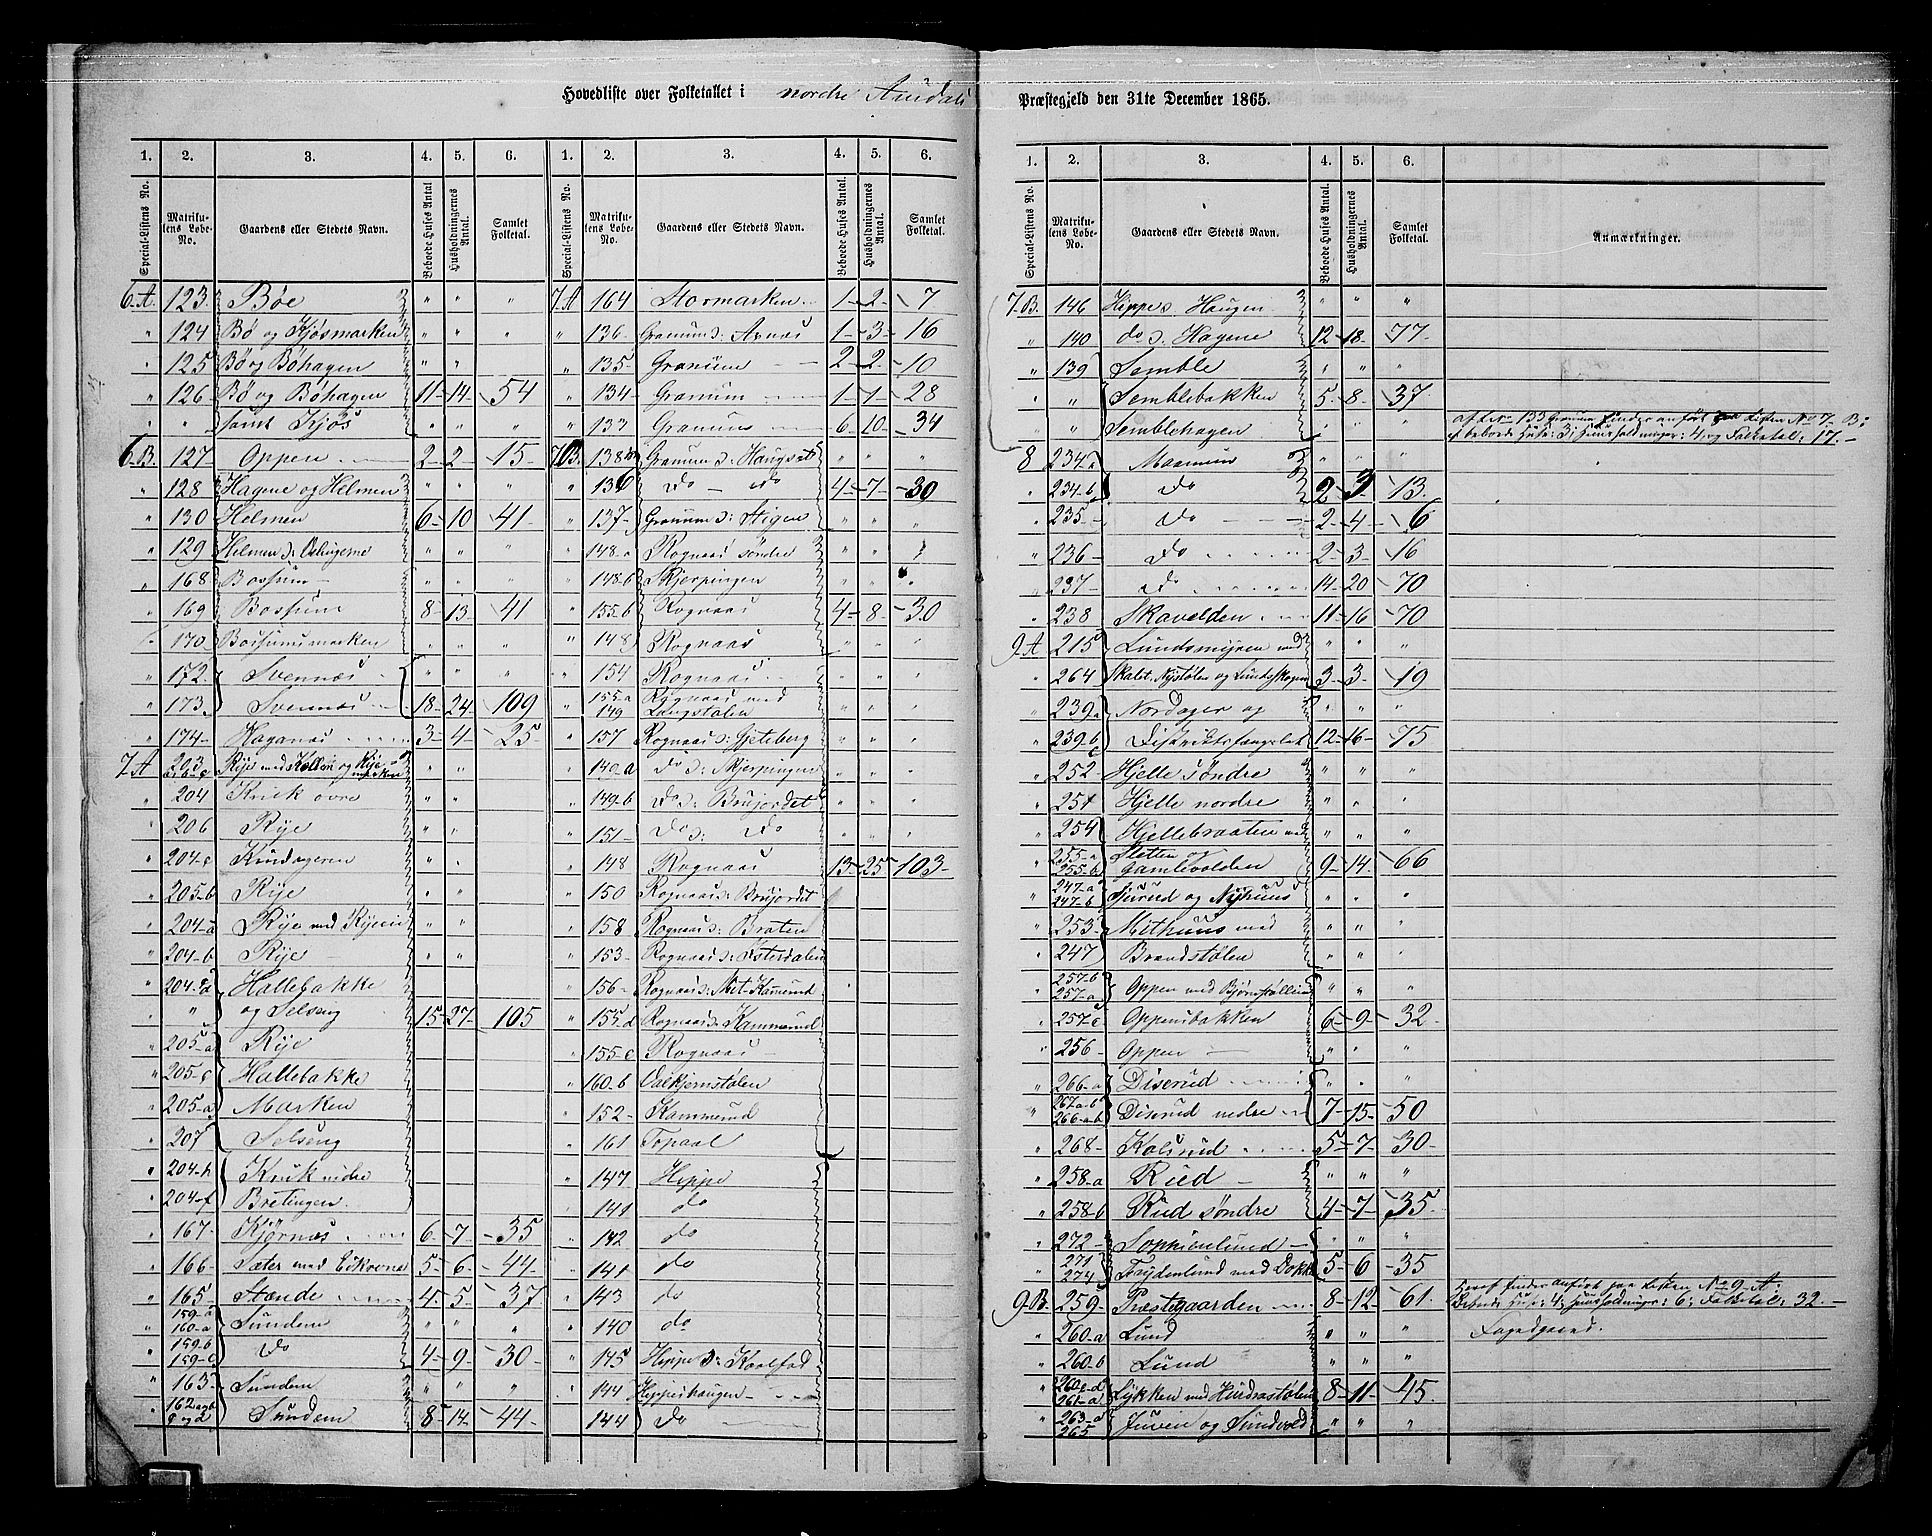 Hovedliste over Folketallet i nordre Aurdals
Præstegjeld den 31te December 1865.
1. 2. 3. 4. 5. 6. 1. 2. 3. 4. 5. 6.
Special-Listens No. Matrikulens Løbe-No. Gaardens eller Stedets Navn. Beboede Huses Antal. Husholdningernes Antal. Samlet Folketal. Special-Listens No. Matrikulens Løbe-No. Gaardens eller Stedets Navn. Beboede Huses Antal. Husholdningernes Antal. Samlet Folketal.
6.A. 123. Bøe " " "
" 124 Bø og Kjøsmarken " " "
" 125 Bø og Bøhagen " "
" 126 Bø og Bøhagen 11 14 54
" " samt Kjøs
6.B. 127 Oppen 2 2 15
" 128 Hagene og Helmen " " "
" 130 Helmen 6 10 41
" 129 Helmen " " "
" 168 Bossum " " "
" 169 Bossum 8 13 41
" 170 Bossumsmarken " " "
" 172 Svennæs " " "
" 173 Svennæs 18 24 109
" 174 Haganæs 3 4 25
7.A 203 Rye med Kollen og Rye
" 204 Kruk øvre " "
" 206 Rye " "
" 204-c Kindageren " "
" 205-b Rye " "
" 204-a Rye med
" 204-b Rye " "
" 204-d Hallebakke
" " og Selseng 15 27 105
" 205-a Rye
" 205-c Hallebakke
" 205-a Marken
" 207 Selseng
" 204-h Kruk nedre
" 204-f Bretingen
" 167 Kjørnæs 6 7 35
" 166 Sæter med 5 6 44
" 165 Stænde 4 5 37
" 159-a 160-a Sundem " " "
" 159-b 159-c Do 4 9 30
" 163 Sundem " " "
" 162 a og b c og d Sundem 8 14 44
7.A 164 Stormarken 1 2 7
" 136 Granum d: Aanæs 1 3 16
" 135 Granum 2 2 10
" 134 Granum 1 1 28
" 133 Granum 6 10 34
7.B. 138 Granum d: Haugset " " "
" 136 Do do 4 7 30
" 137 Granum d: Stigen " " "
" 148-a Rognaas søndre " "
" 148-b Skjerpingen " "
" 155-b Rognaas 4 8 30
" 148 Rognaas " "
" 154 Rognaas " " "
" 155-a 149 Rognaas med Langstølen " " "
" 157 Rognaas d: Gjeteberg " " "
" 140-a Do d: Skjerpingen " " "
" 149-b Do d: Brujordet " " "
" 151 Do d: Do " " "
" 148 Rognaas 13 25 103
" 150 Rognaas d: Brujordet
" 158 Rognaas d: Braten
" 153 Rognaas d: Østerdalen
" 156 Rognaas d:
" 155-d Rognaas d: Kammerud
" 155-c Rognaas
" 160-b Valkjernstølen
" 152 Kammerud
" 161 Fopaal
" 147 Hippe
" 141 do
" 142 do
" 141 do
" 143 do
" 140 do
" 145 Hippe d:
" 144 Hippeshaugen
" 144 Do
1. 2. 3. 4. 5. 6.
Special-Listens No. Matrikulens Løbe-No. Gaardens eller Stedets Navn. Beboede Huses Antal. Husholdningernes Antal. Samlet Folketal. Anmærkninger.
7.B. 146 Hippe d: Haugen " " "
" 140 do d: Hagene 12 18 77
" 139 Semble " " "
" " Semblebakken 5 8 37
" " Semblehagen " " " af No 133 Granum findes anført paa Listen No 7. B: beboede Huse: 3; Huusholdninger: 4 og Folketal: 17.
8 234 a Maanum " " "
" 234-b Do 2 3 13
" 235 Do 2 4 6
" 236 Do 2 3 16
" 237 Do 14 20 70
" 238 Skavelden 11 16 70
9.A 215 Lundsmyren med " " "
" 264 Nystølen og Lundsskogen 3 3 19
" 239 a Nordager og " " "
" 239-b c Distriktsfængslet 12 16 75
" 252 Hjelle søndre " " "
" 251 Hjelle nordre " " "
" 254 Hjellebraaten med " " "
" 255-a 255-b Sletten og Gamlevolden 9 14 66
" 247-a 247-b og Nyhuus " " "
" 253 Mithuus med " " "
" 247 Brandstølen " " "
" 257-b 257-a Oppen med Bjørnstøllien " " "
" 257-c Oppensbakken 6 9 32
" 256 Oppen " " "
" 266-a Diserud " " "
" 267 a-b 266-a-b Diserud nedre 7 15 50
" 268 Kolsrud 5 7 30
" 258-a Rud " " "
" 258-b Rud søndre 4 7 35
" 272 Sophienlund " " "
" 271 274 Frydenlund med Dokke 5 6 35
9.B. 259 Præstegaarden 8 12 61 Heraf findes anført paa Listen No 9. A. Beboede Huse: 4; Huusholdninger: 6; Folketal: 32.
" 260-a Lund " " "
" 260-b Lund " " "
" 260 c-d 261-a Lykken med Hindrastølen 8 11 45
" 263-a 265 Juven og Sundvold " " "